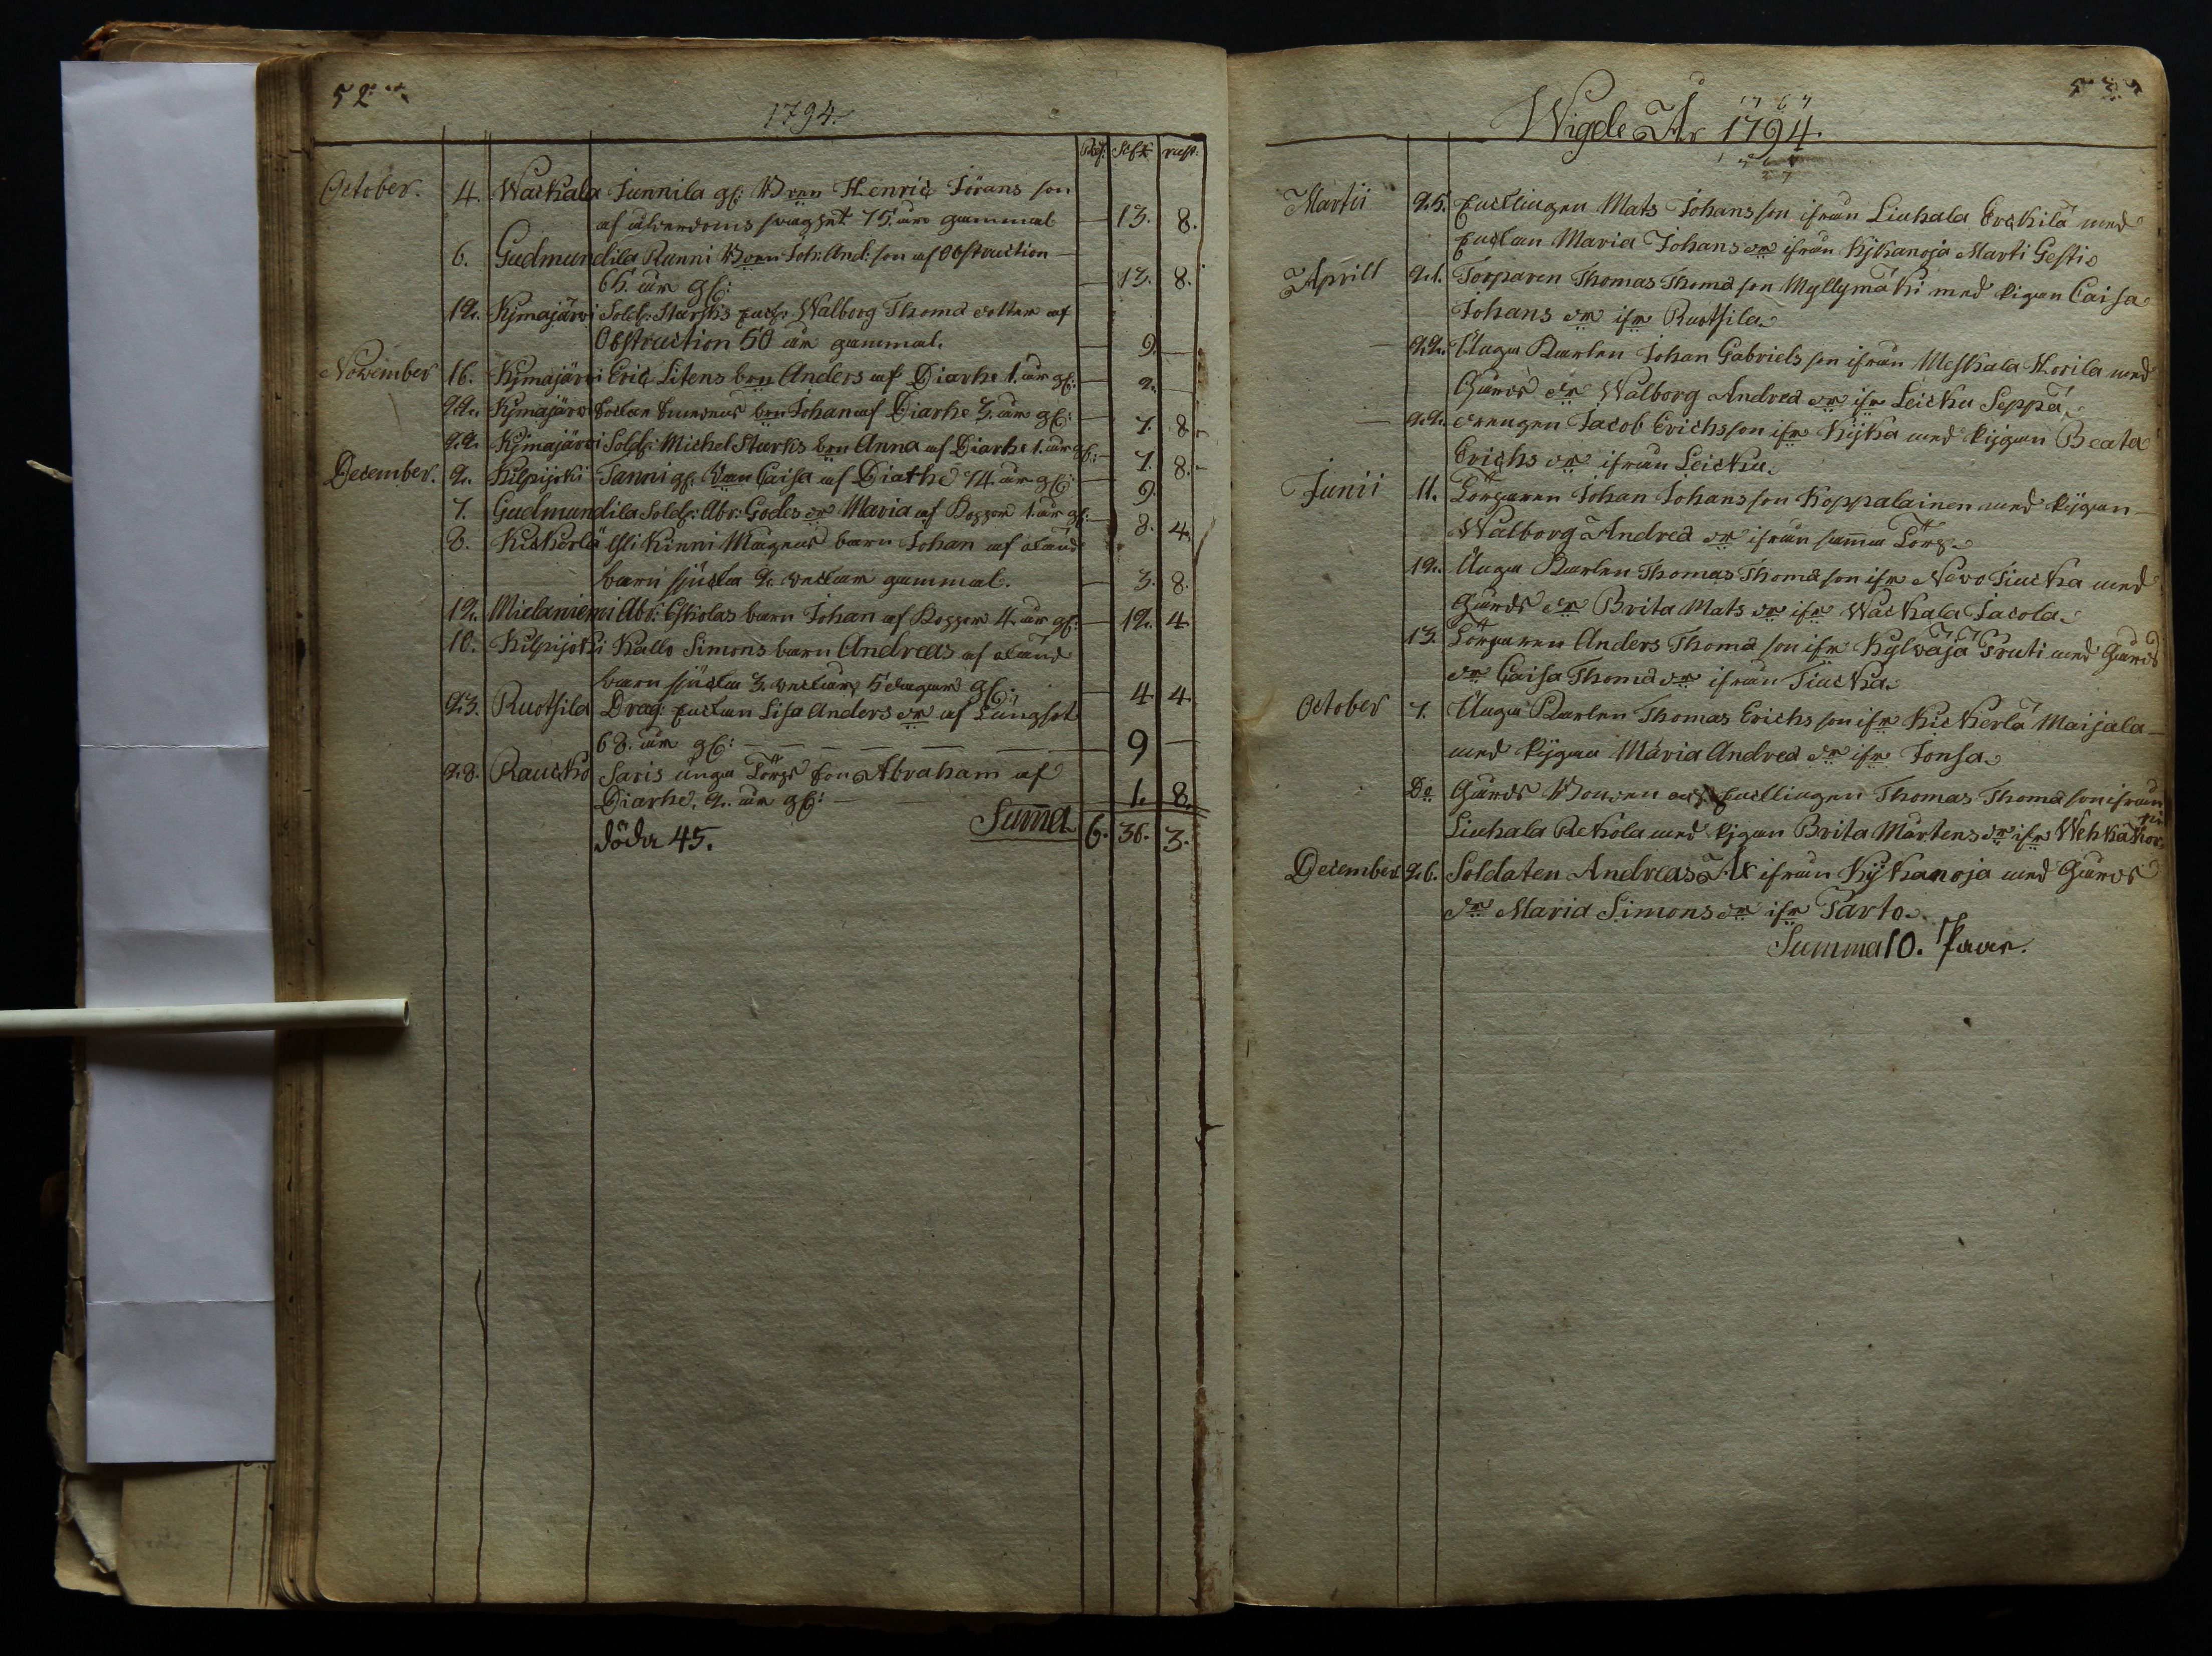 52
1794.
Rd: Sch: rst:
October. 4. Wackala Junnila gl: Bden Henric Jörans son
af ålderdoms swaghet 75. års gammal 13. 8.
6. Gudmundila Runni Boen Joh: And: son af Obstruction
66. år gl: 13. 8.
12. Kijmajärvi Sold: Starks Enck: Walborg Thomä dotter af
Obstruction 50 år gammal. 9.
November 16. Kijmajärvi Eric Litens brn Anders af Diarhe 1. år gl: 2.
22. Kijmajärvi brn Johan af Diarhe 3. år gl: 7. 8
22. Kijmajärvi Sold: Michel Starks brn Anna af Diarhe 1. år gl: 7. 8.
December. 2. Kilpijoki Tanni gl: Caisa af Diarhe 74. år gl: 9.
7. Gudmundila Sold: Abr: Godes dr Maria af Koppor 1. år gl: 8. 4.
8. Kickerlä Isli Kinni Magnus barn Johan af okänd
barn siuka 2. veckor gammal. 3. 8.
12. Mielaniemi Abr: Eskolas barn Johan af Koppor 4. år gl: 12. 4
10. Kilpijoki Kallo Simons barn Andreas af okänd
barn siuka 3. veckor, 5 dagar gl: 4 4.
23. Ruotsila Drag: Enckan Lisa Anders dr af Lungsot
68. år gl: 9
28. Raucko Saris unga Torp: son Abraham af
Diarhe, 2. år gl: 1. 8.
döda 45. Summa 6. 36. 3.
Wigde År 1794.
Martii 25. Encklingen Mats Johansson ifrån Liuhala Erckilä med
Enckan Maria Johans dr ifrån Kijkanoja Marti Gestis
Aprill 21. Torparen Thomas Thomä son Myllymäki med Pigan Caisa
Johans dr ifr Ruotsila.
22. Unga Karlen Johan Gabriels son ifrån Meskala Horila med
Gårds dr Walborg Andreä dr ifr Leicku Seppä.
22. Drengen Jacob Erichsson ifr Kijkä med Pigan Beata
Erichs dr ifrån Leicku.
Junii 11. Torparen Johan Johansson Koppalainen med Pigan
Walborg Andreä dr ifrån samma Torp.
12. Unga Karlen Thomas Thomä son ifr Nevo Tiucka med
Gårds dr Brita Mats dr ifr Wackala Jacola.
13. Torparen Anders Thomä son ifr Kylväjä Pruti med Gårds
dr Caisa Thomä dr ifrån Tiucka.
October 7. Unga Karlen Thomas Erichs son ifr Kickerlä Maijala
med Pigan Maria Andreä dr ifr Jonsa.
Do Gårds Bonden och Encklingen Thomas Thomä son ifrån
Liuhala Rekola med Pigan Brita Mårtens dr ifr Wehkakorpi
December 26. Soldaten Andreas Ax ifrån Kijkanoja med Gårds
dr Maria Simons dr ifr Tarto.
Summa 10. Paar.